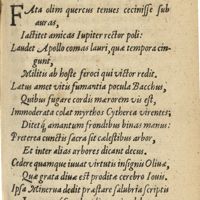 FAta olim quercus tenues cecinisse sub
auras,
Iactitet amicas Iupiter rector poli:
Laudet Apollo comas lauri, quæ tempora cin-
gunt,
Militis ab hoste feroci qui victor redit.
Latus amet vitis fumantia pocula Bacchus,
Quibus fugare cordis mærorem vis est,
Immoderata colat myrthos Cytherea virentes;
Ditetq́; amantum frondibus binas manus:
Præterea cunctis sacra sit cælestibus arbor,
Et inter alias arbores dicant decus.
Cedere quamque iuuat virtutis insigni Oliuæ,
Quæ grata diuæ est prodita cerebro Iouis.
Ipsa Minerua dedit præstare salubria scriptu